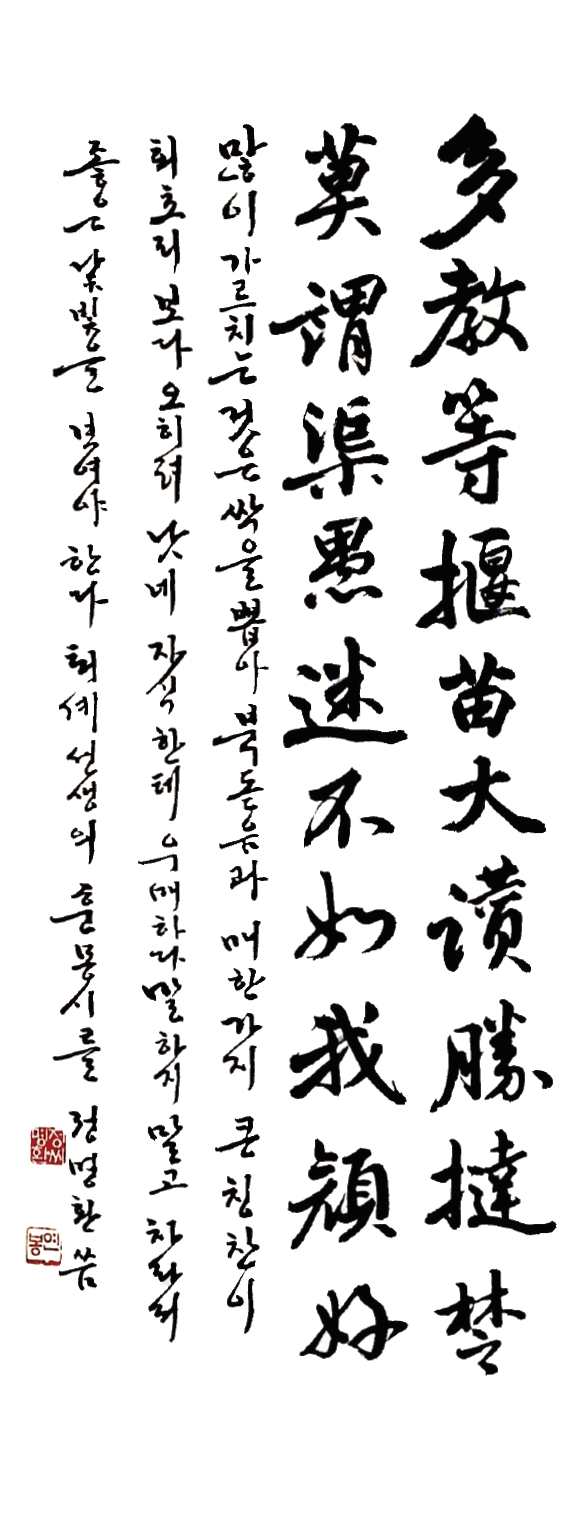 多教等揠苗大讚勝撻楚
莫謂渠愚迷不如我顔好
많이 가르치는 것은 싹을 뽑아 북돋음과 매한가지 큰 칭찬이
회초리 보다 오히려 낫네 자식 한테 우매하다 말 하지 말고 차라리
좋은 낯빛을 보여야 한다 퇴계선생의 훈몽시를 정명환 씀